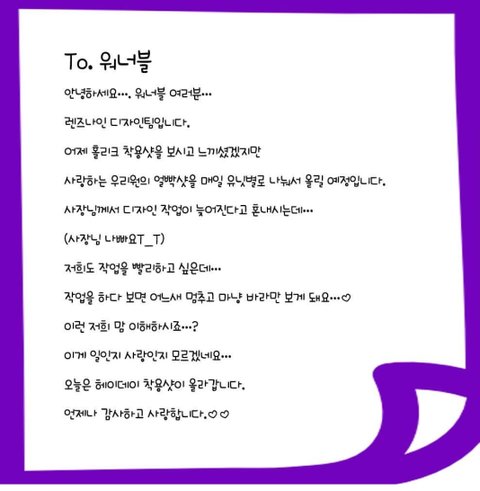 To. 워너블
안녕하세요.... 워너블 여러분...
렌즈나인 디자인팀입니다.
어제 홀리크 착용샷을 보시고 느끼셨겠지만
사랑하는 우리원의 얼빡샷을 매일 유닛별로 나눠서 올릴 예정입니다.
사장님께서 디자인 작업이 늦어진다고 혼내시는데...
(사장님 나빠요T_T)
저희도 작업을 빨리하고 싶은데...
작업을 하다 보면 어느새 멈추고 마냥 바라만 보게 돼요...♡
이런 저희 맘 이해하시죠...?
이게 일인지 사랑인지 모르겠네요...
오늘은 헤이데이 착용샷이 올라갑니다.
언제나 감사하고 사랑합니다.♡♡